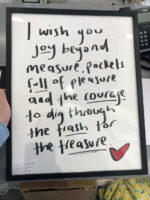 I wish you
joy beyond
measure, pockets
full of pleasure
and the courage
to dig through
the trash for
the treasure